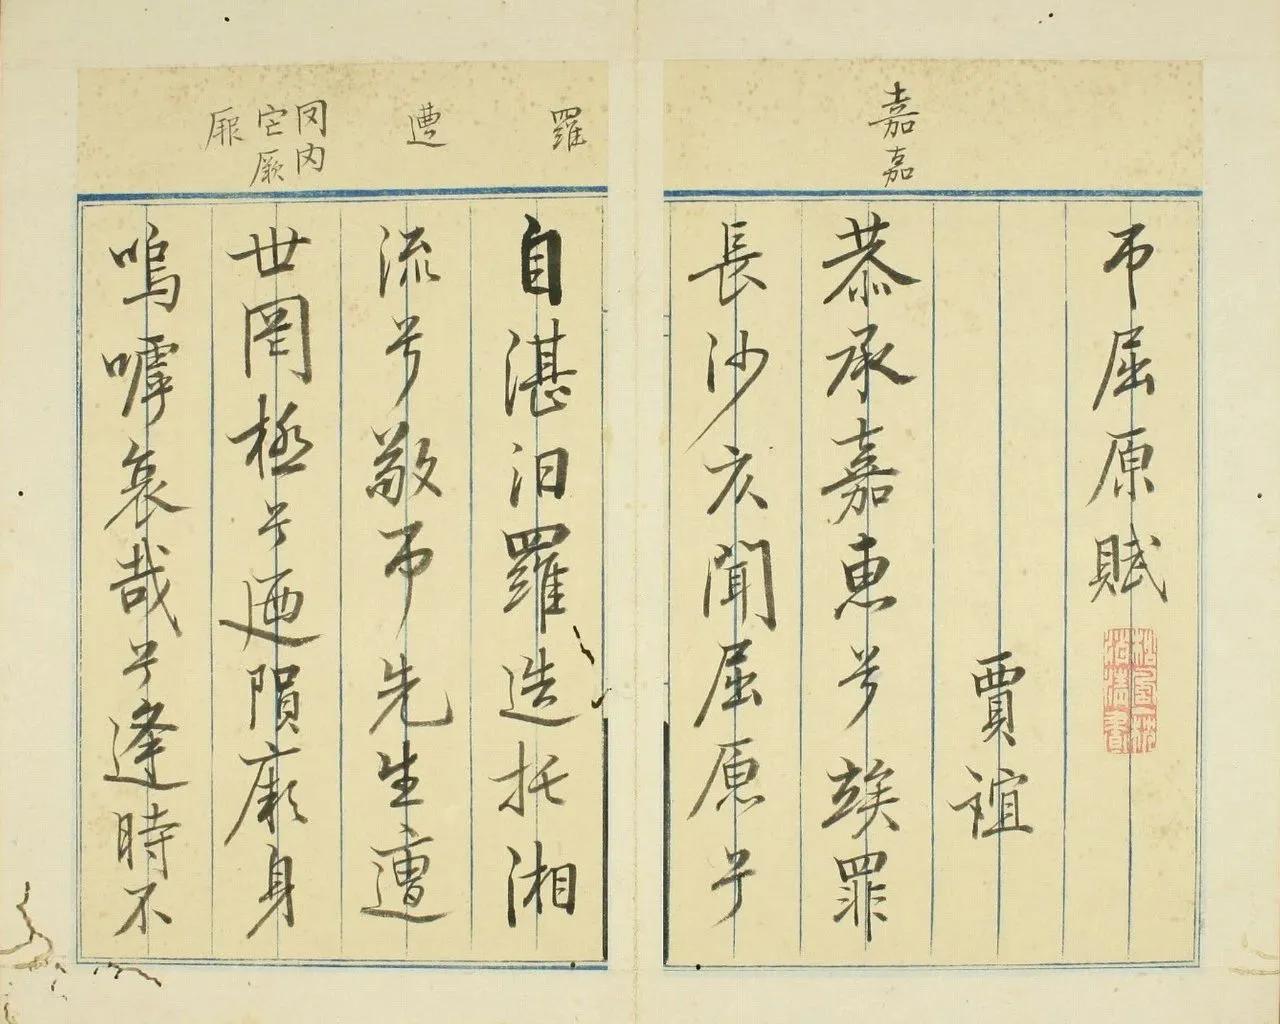 弔屈原賦
賈誼
嘉嘉
恭承嘉惠兮竢罪
長沙仄聞屈原兮
羅
自湛汨羅造托湘
遭
流兮敬弔先生遭
它厥
世罔極兮迺隕厥身
嗚嘑哀哉兮逢時不